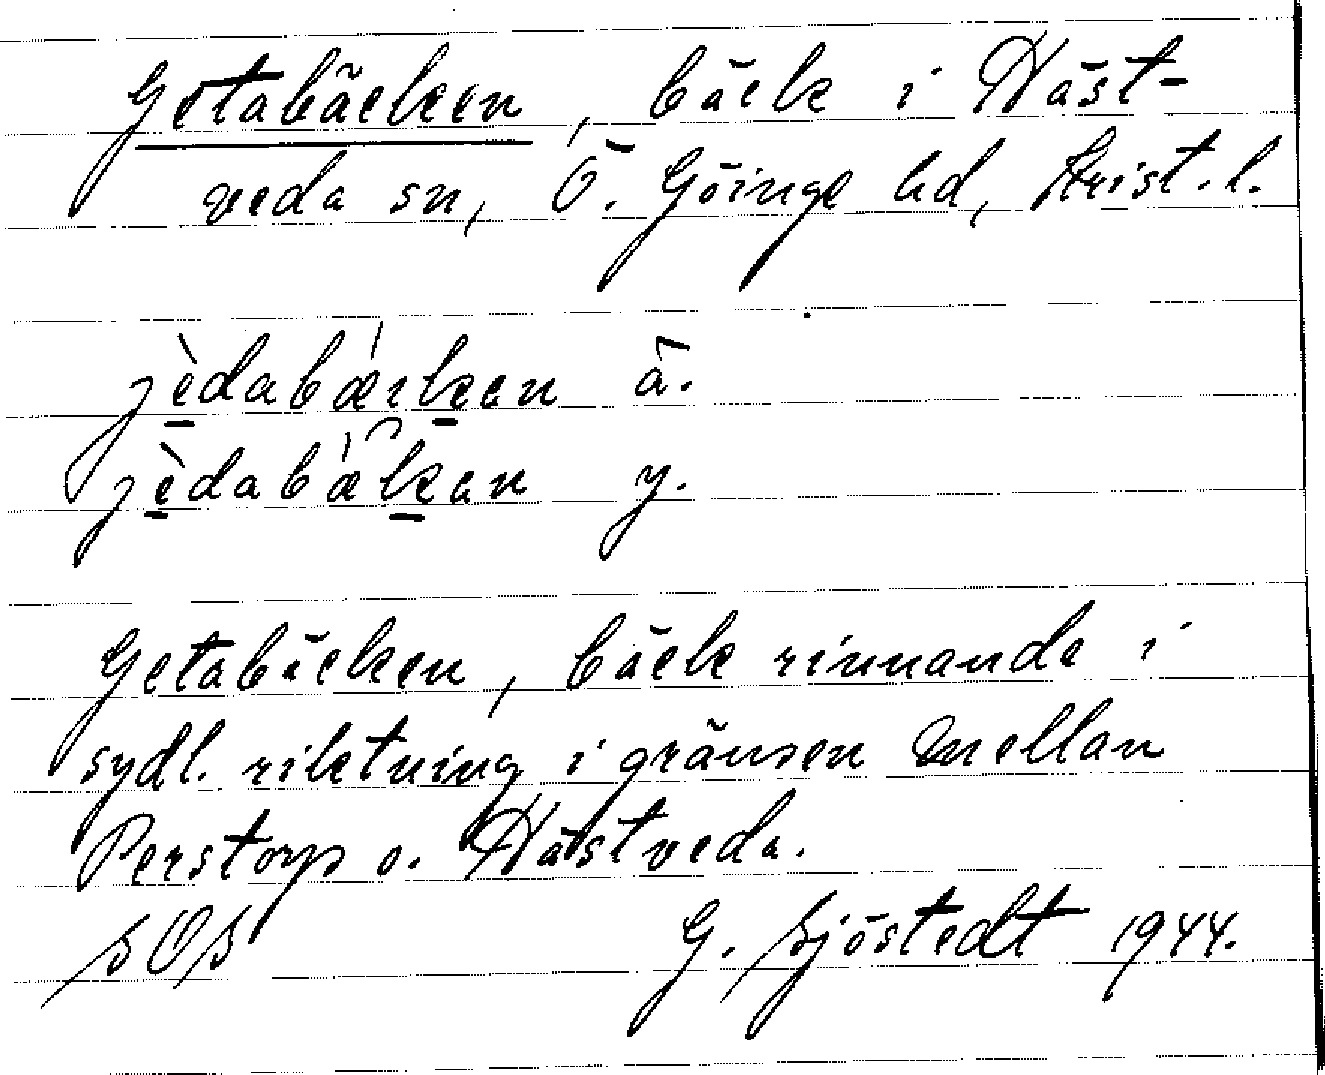 Getabäcken, bäck i Häst-
veda sn, Ö. Göinge hd, Krist. l.
jèdabǽrkan ä.
jèdabǽkan y.
Getabäcken, bäck rinnande i
sydl. riktning i gränsen mellan
Perstorp o. Hästveda.
SOS G. Sjöstedt 1944.